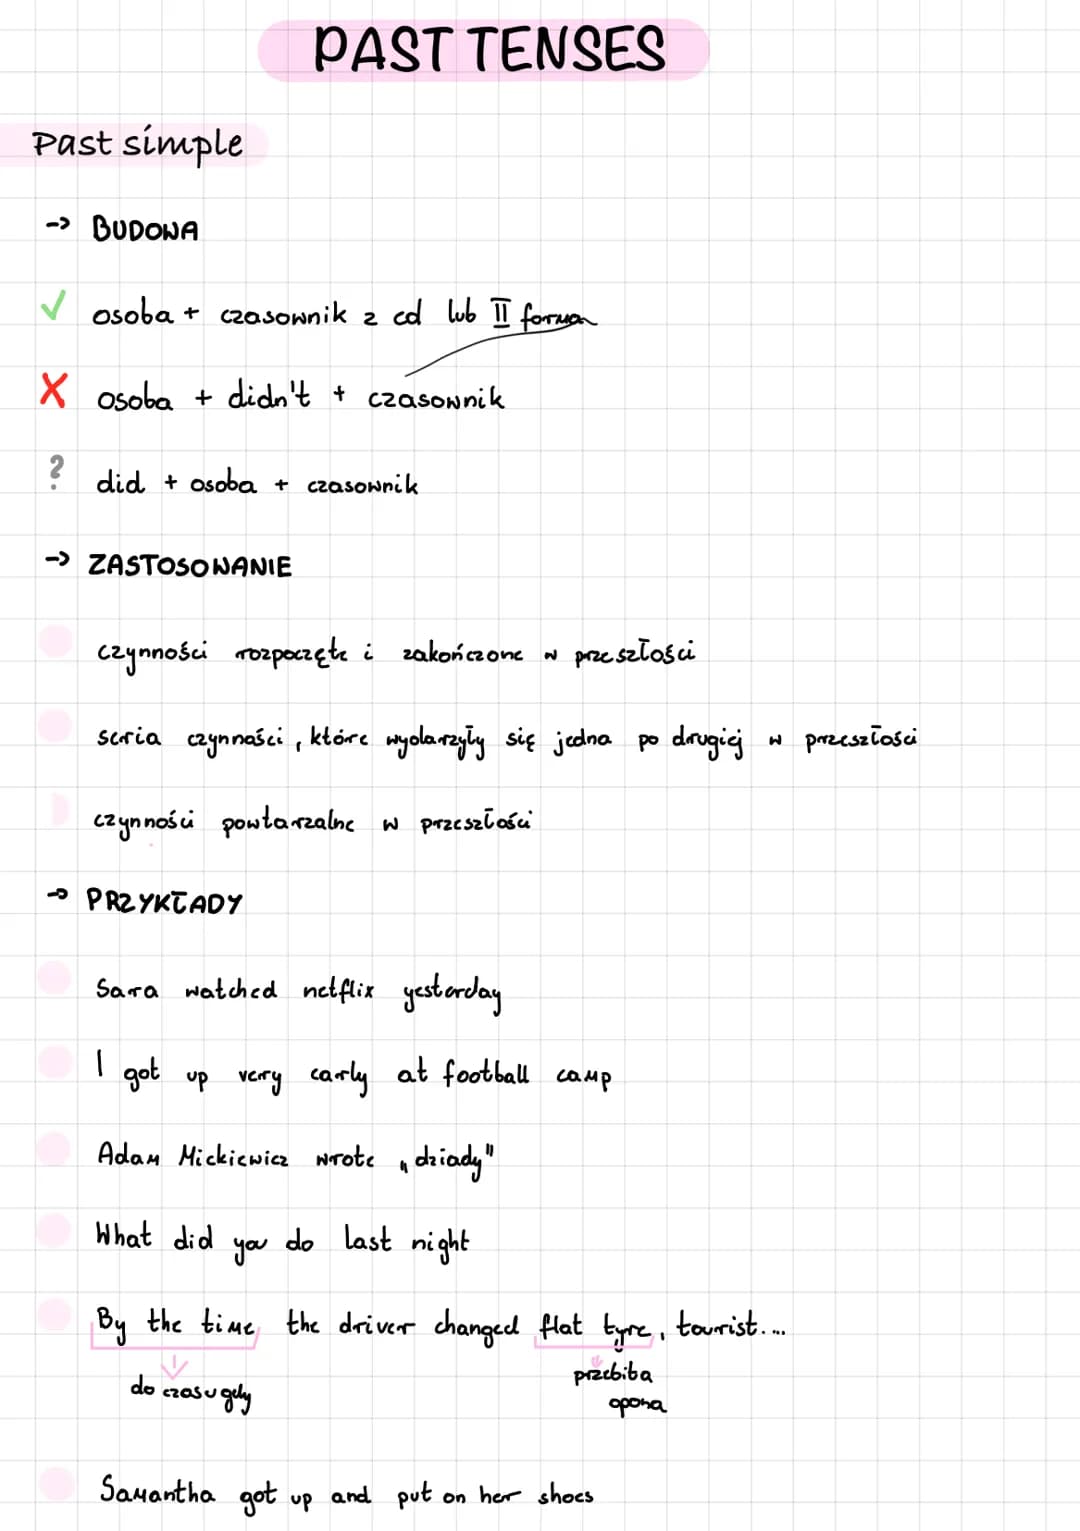 PAST TENSES
Past simple
-> BUDOWA
✓ osoba + czasownik z ed lub II forma
X osoba + didn't + czasownik
? did + osoba + czasownik
-> ZASTOSOWANIE
czynności rozpoczęte i zakończone w przeszłości
seria czynności, które wydarzyły się jedna po drugiej w przeszłości
czynności powtarzalne w przeszłości
-> PRZYKŁADY
Sara watched netflix yesterday
I got up very early at football camp
Adam Mickiewicz wrote „dziady"
What did you do last night
By the time, the driver changed flat tyre, tourist....
do czasu gdy
przebita
opona
Samantha got up and put on her shoes